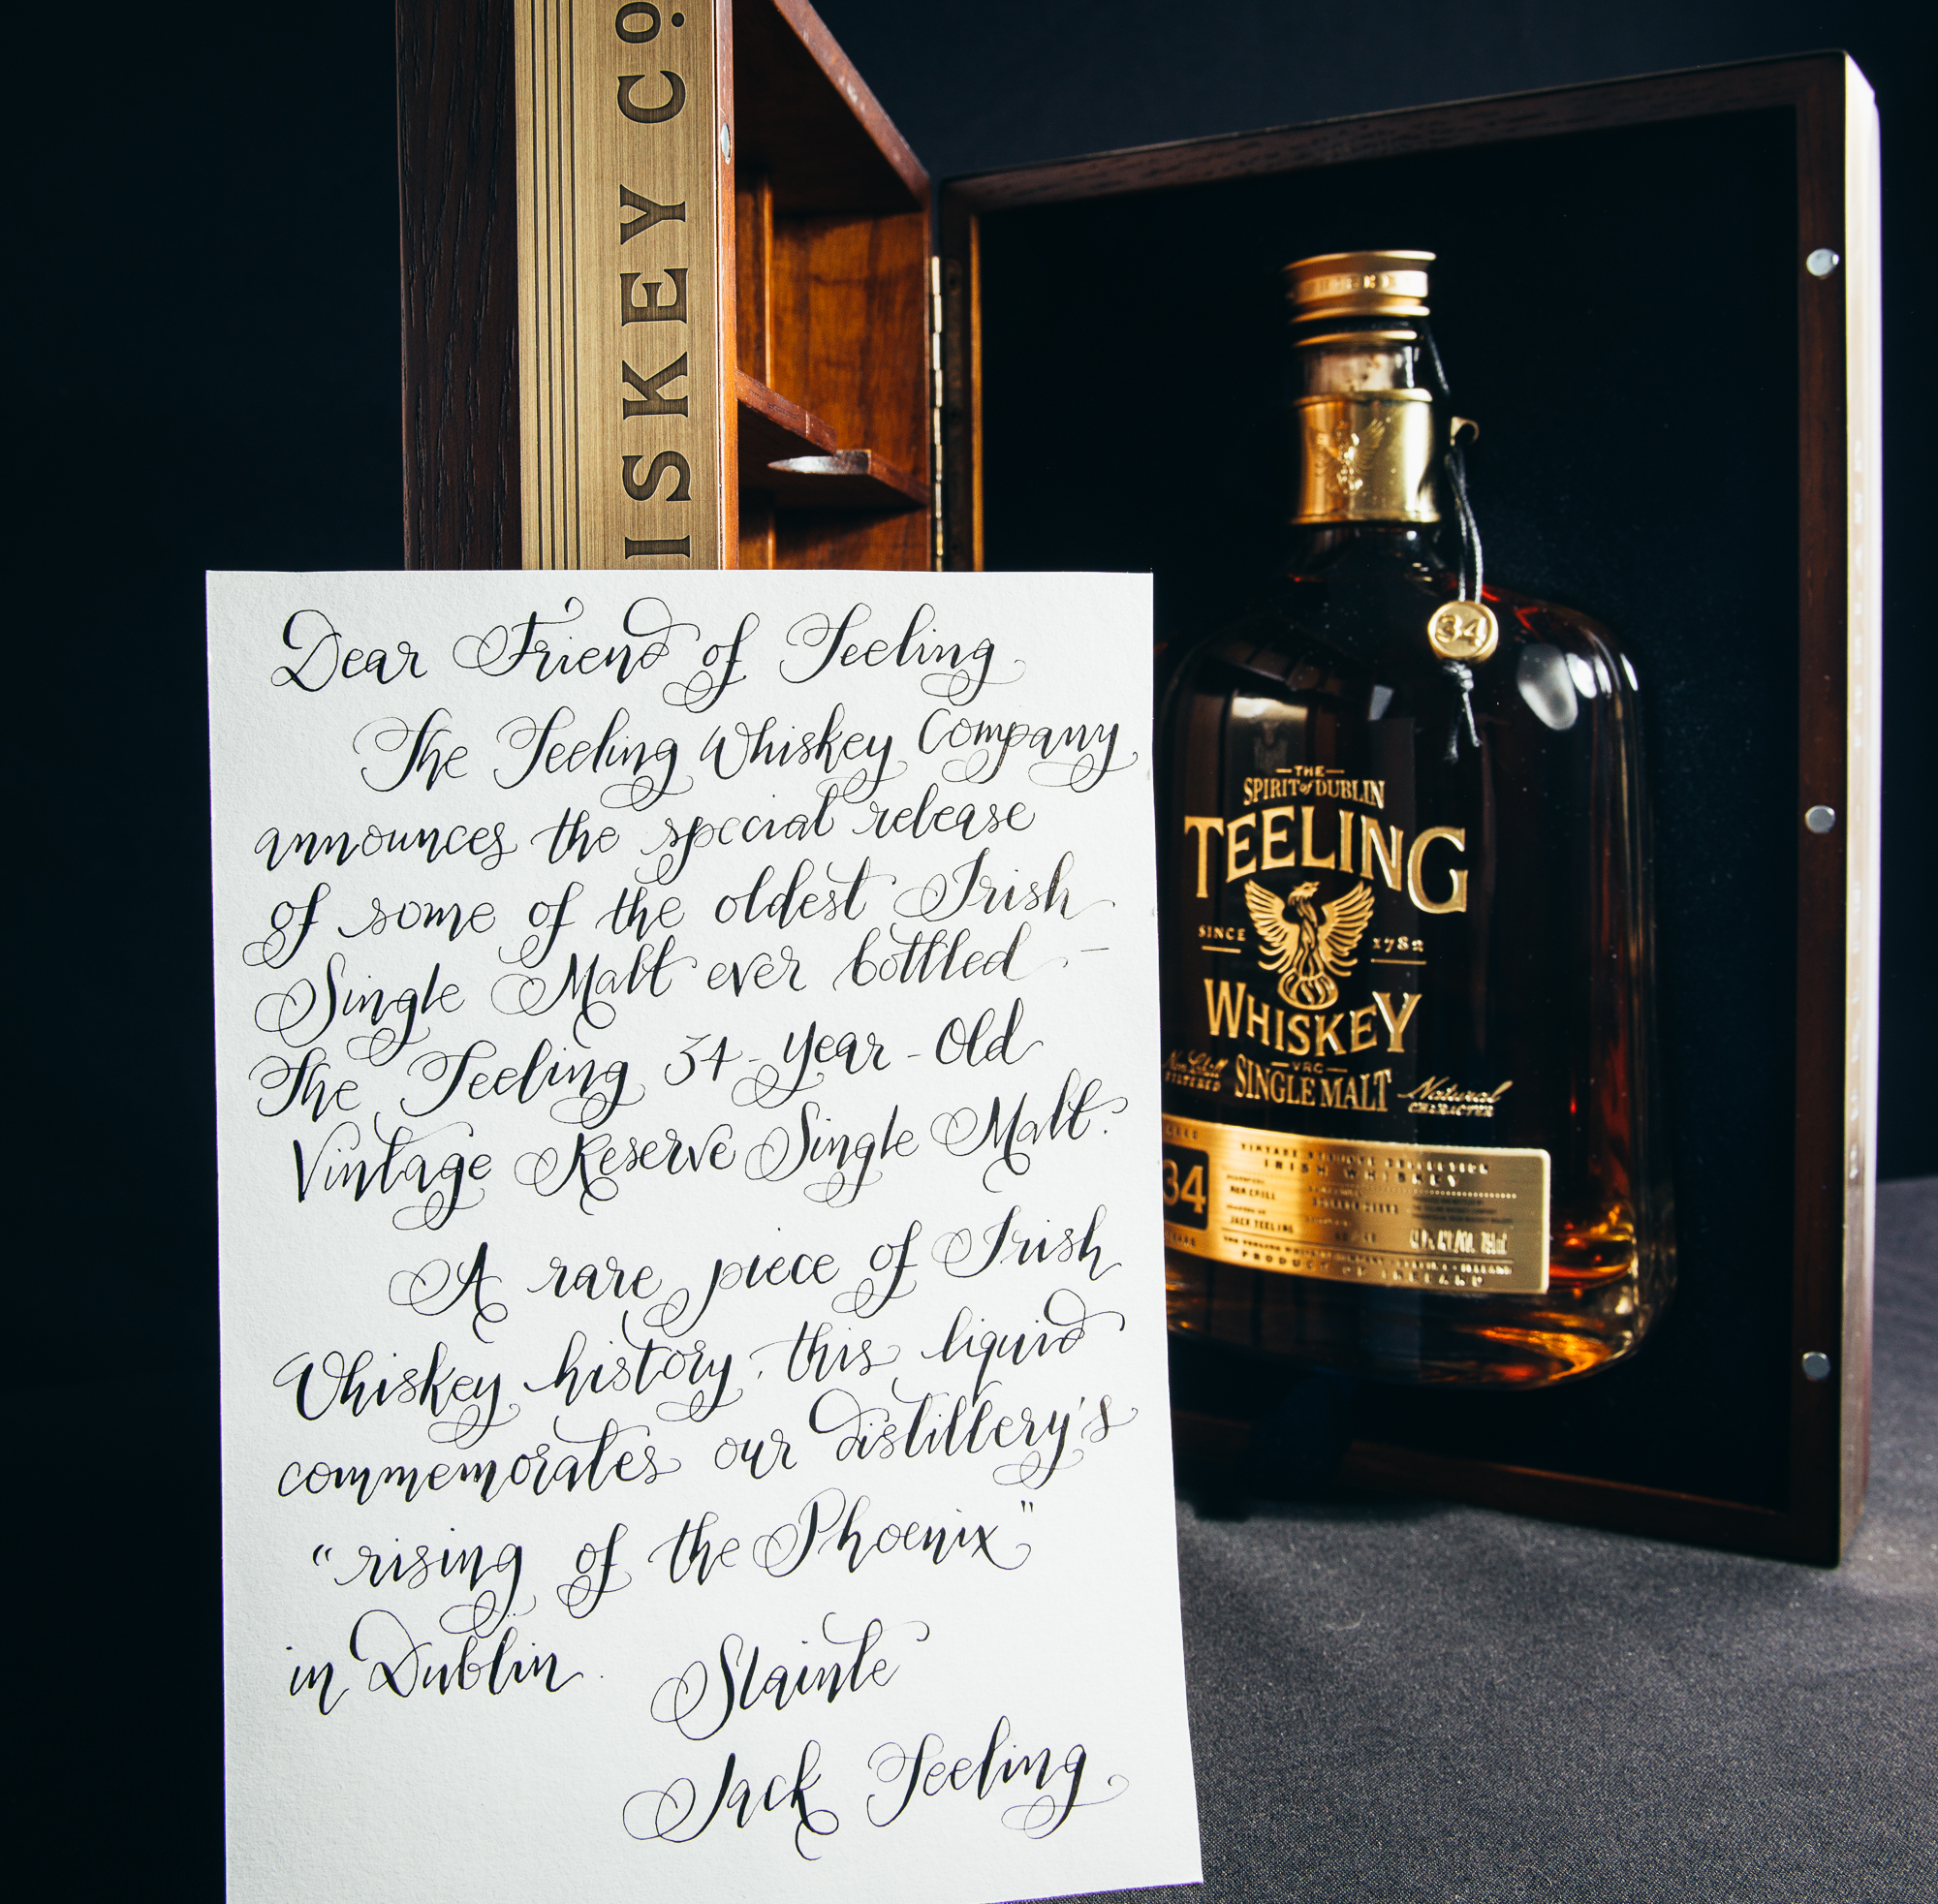 ISKEY Co.
Dear Friend of Teeling
The Teeling Whiskey Company
announces the special release
of some of the oldest Irish
Single Malt ever bottled -
The Teeling 34-year-Old
Vintage Reserve Single Malt.
A rare piece of Irish
Whiskey history, this liquid
commemorates our distillery's
"rising of the Phoenix"
in Dublin.
Slainte
Jack Teeling
34
THE
SPIRIT of DUBLIN
TEELING
SINCE 1782
WHISKEY
VRC
Non Chill FILTERED SINGLE MALT Natural CHARACTER
VINTAGE RESERVE COLLECTION
IRISH WHISKEY
34
NON CHILL
JACK TEELING
PRODUCT OF IRELAND